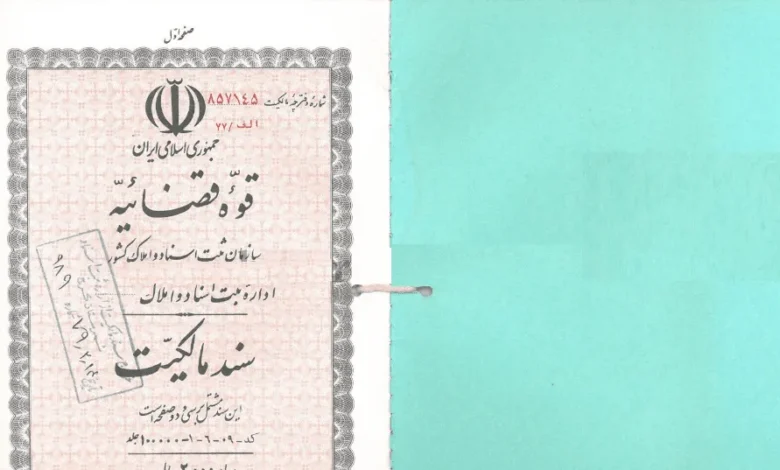 صفحه اول
شماره دفترچه مالکیت ۸۵۷۱٤۵
الف/۷۷
جمهوری اسلامی ایران
قوّه قضائیّه
سازمان ثبت اسناد و املاک کشور
اداره ثبت اسناد و املاک
سند مالکیّت
این سند مشتمل بر سی و دو صفحه است
کد-۰۹-۶-۱-۱۰۰۰۰۰ جلد
۹۸۹
۷۹/۲/۱۴